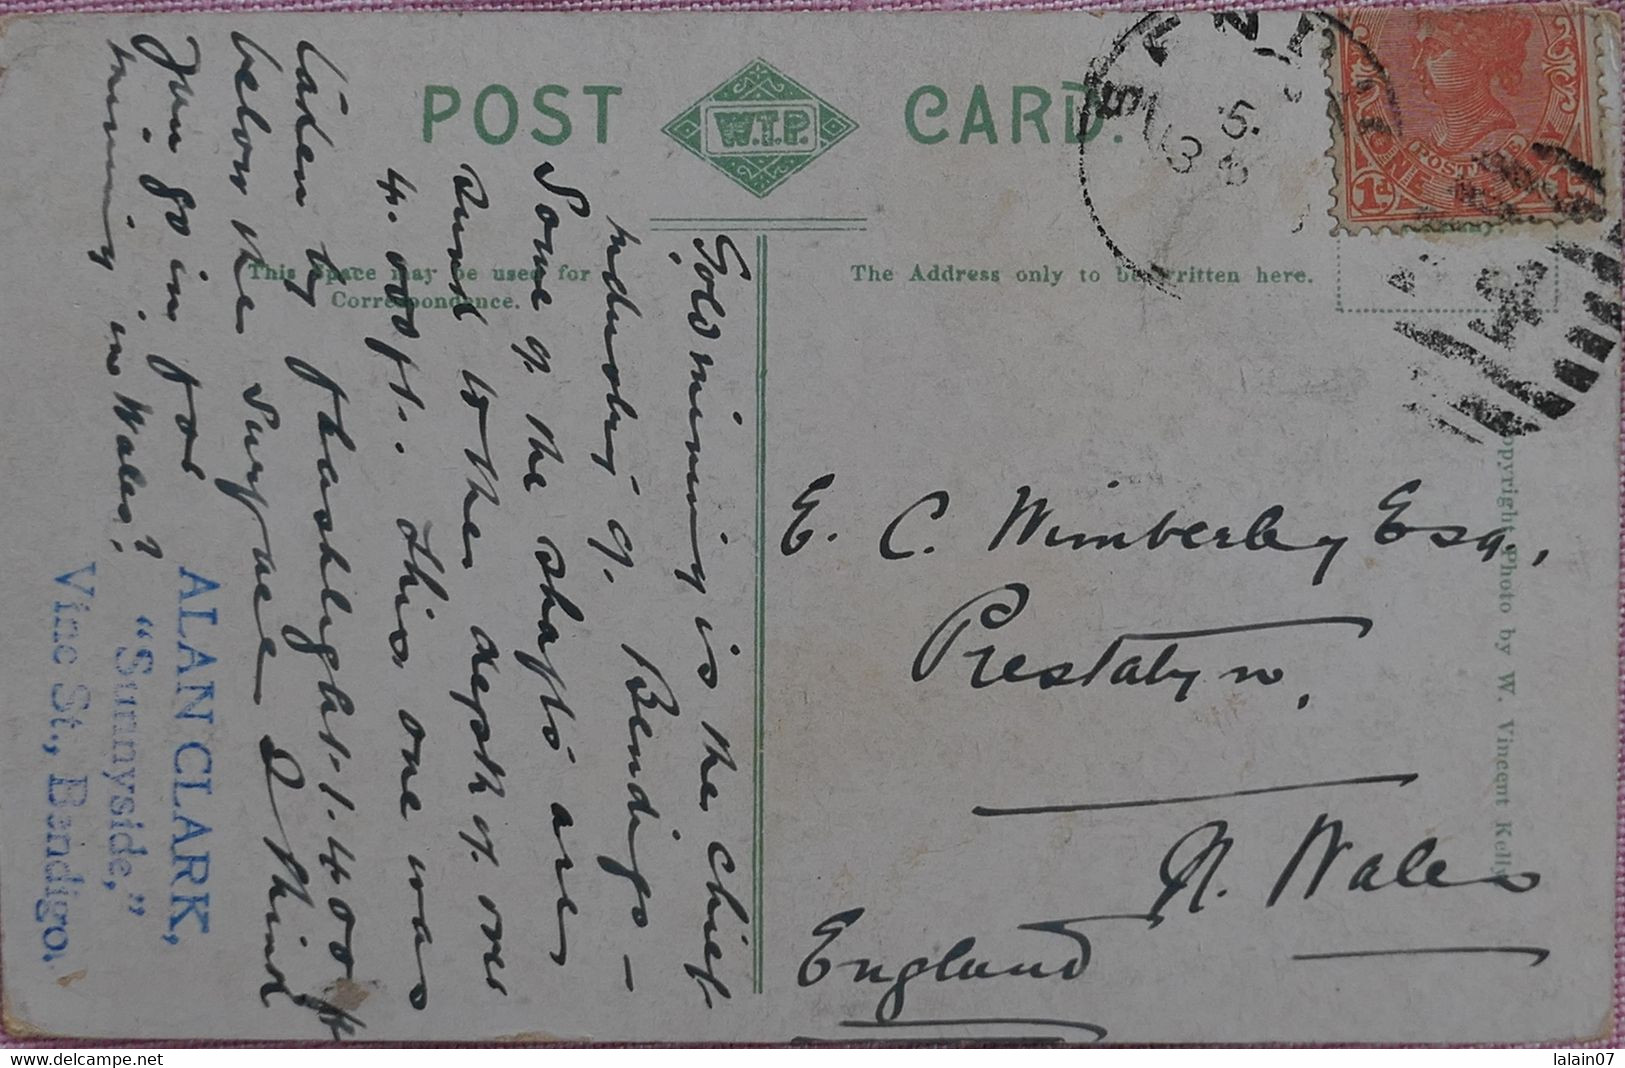 POST CARD.
W.T.P.
This Space may be used for
Correspondence.
The Address only to be written here.
Gold mining is the chief
industry of Bendigo –
Some of the shafts are
sunk to the depth of over
4.000 ft. This one was
taken by flashlight 1.400 ft
below the surface I think
you go in for
mining in Wales?
ALAN CLARK,
"Sunnyside,"
Vine St., Bendigo.
E. C. Wimberley Esq.,
Prestatyn.
N. Wales
England
POSTAGE
ONE
1d
Copyright Photo by W. Vincent Kelly
lalain07